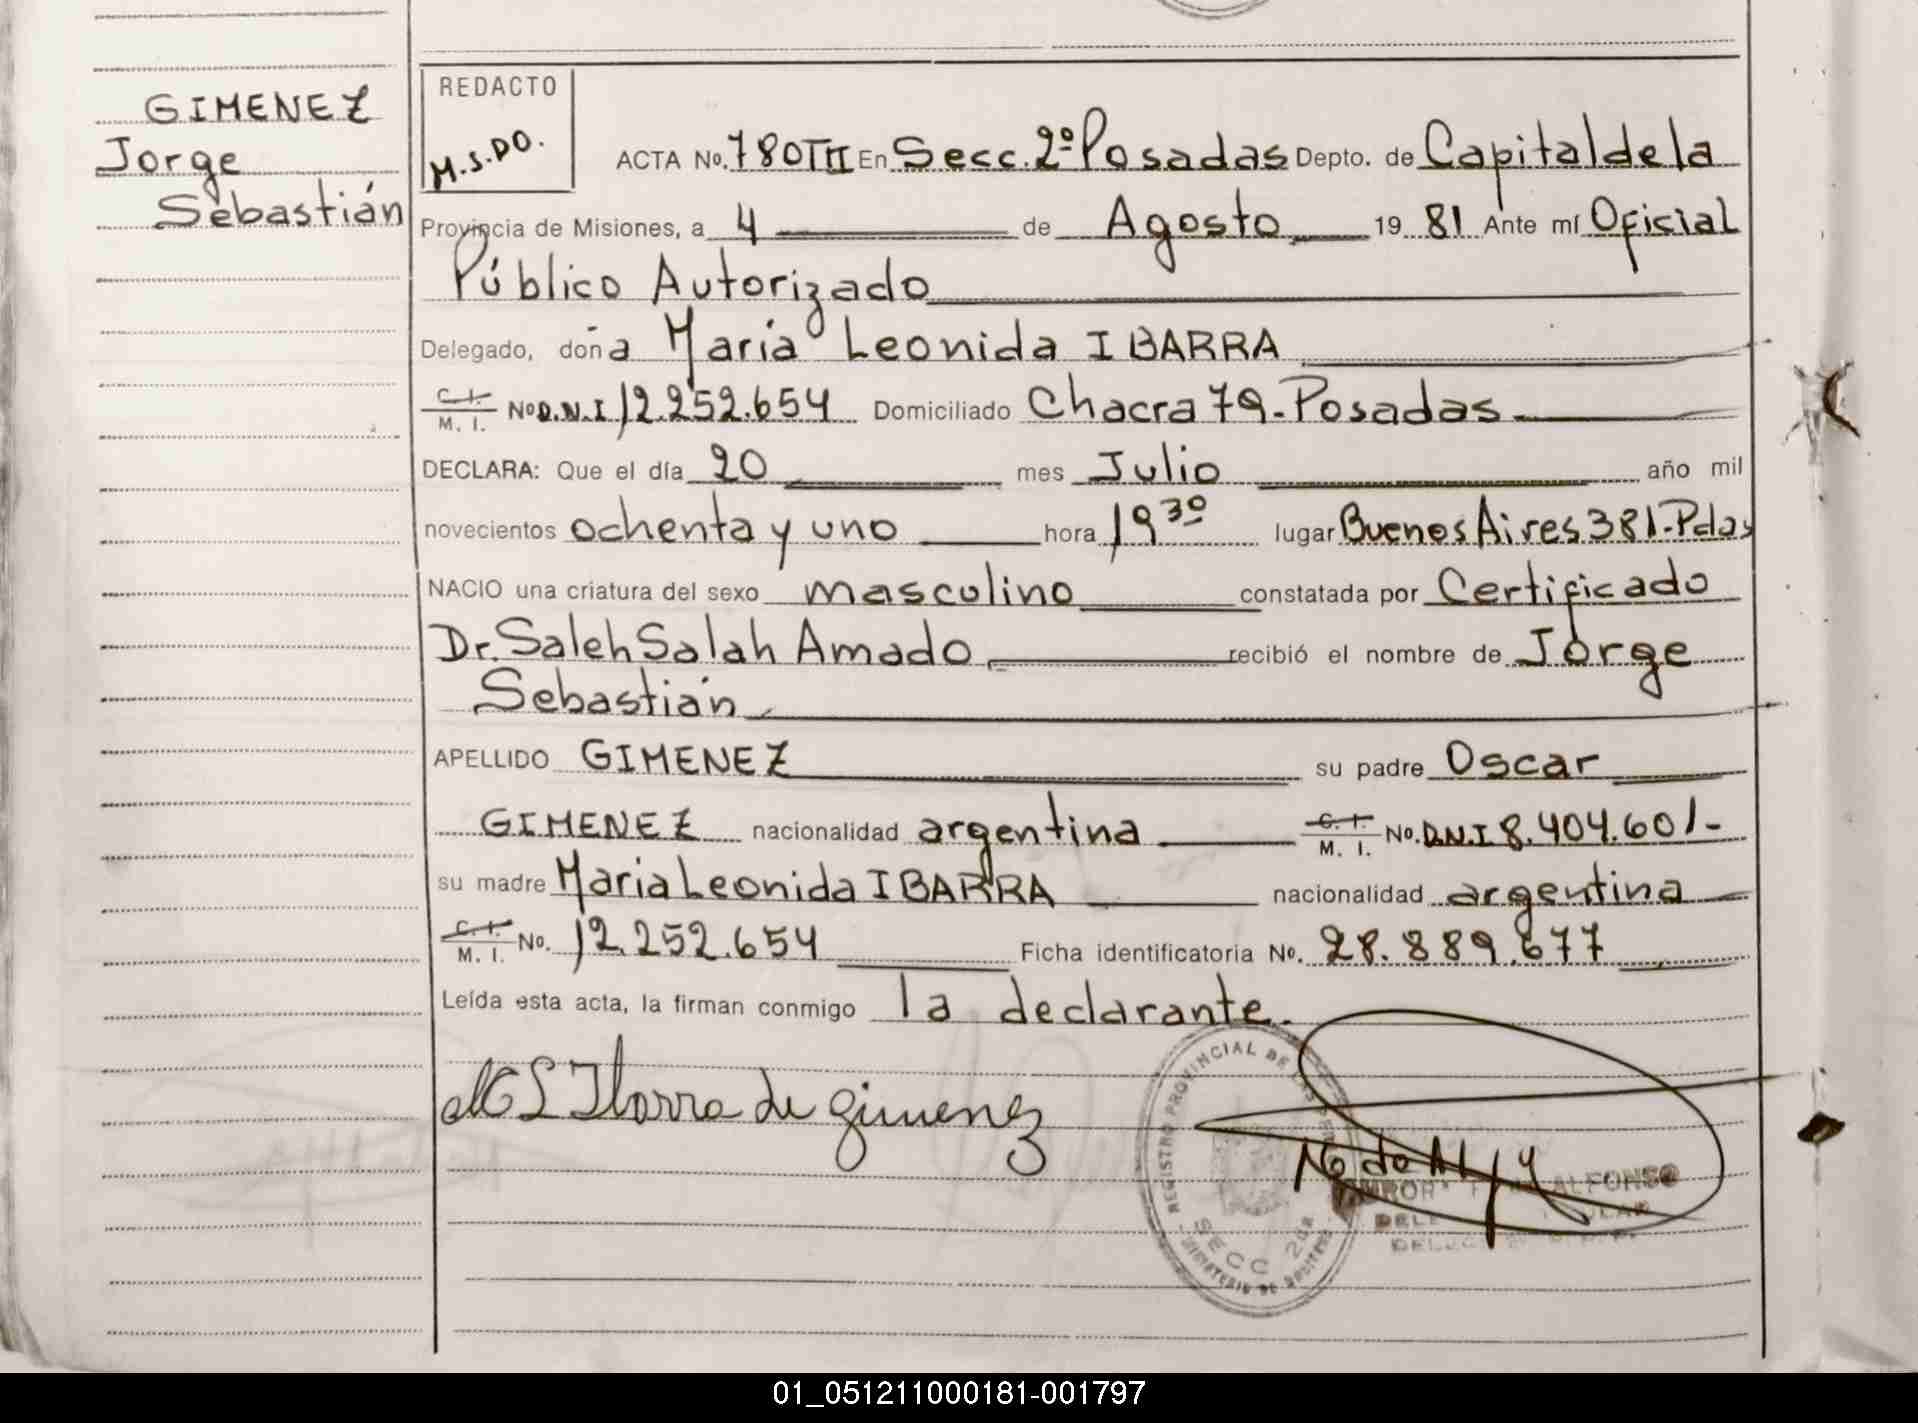 GIMENEZ
Jorge
Sebastián
REDACTO
M.S.DO.
ACTA No. 780TII En Secc. 2º Posadas Depto. de Capital de la
Provincia de Misiones, a 4 de Agosto 19 81 Ante mí Oficial
Público Autorizado
Delegado, doña María Leonida IBARRA
C. I. M. I. No D.N.I 12.252.654 Domiciliado Chacra 79-Posadas
DECLARA: Que el día 20 mes Julio año mil
novecientos ochenta y uno hora 19 30 lugar Buenos Aires 381-Pdas
NACIO una criatura del sexo masculino constatada por Certificado
Dr. Saleh Salah Amado recibió el nombre de Jorge
Sebastián
APELLIDO GIMENEZ su padre Oscar
GIMENEZ nacionalidad argentina C. I. M. I. No. D.N.I 8.404.601-
su madre Maria Leonida IBARRA nacionalidad argentina
C. I. M. I. No. 12.252.654 Ficha identificatoria No. 28.889.677
Leída esta acta, la firman conmigo la declarante.
M L Ibarra de Gimenez
REGISTRO PROVINCIAL DE LAS PER
SECC 2da
ALFONSO
01_051211000181-001797